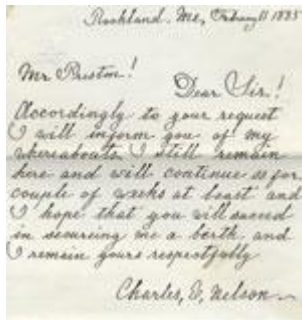 Rockland, Me, Febuary 11 1885
Mr Preston!
Dear Sir!
Accordingly to your request
I will inform you of my
whereabouts. I still remain
here and will continue so for
couple of weeks at least and
I hope that you will succed
in securing me a berth and
I remain yours respectfully
Charles, E, Nelson